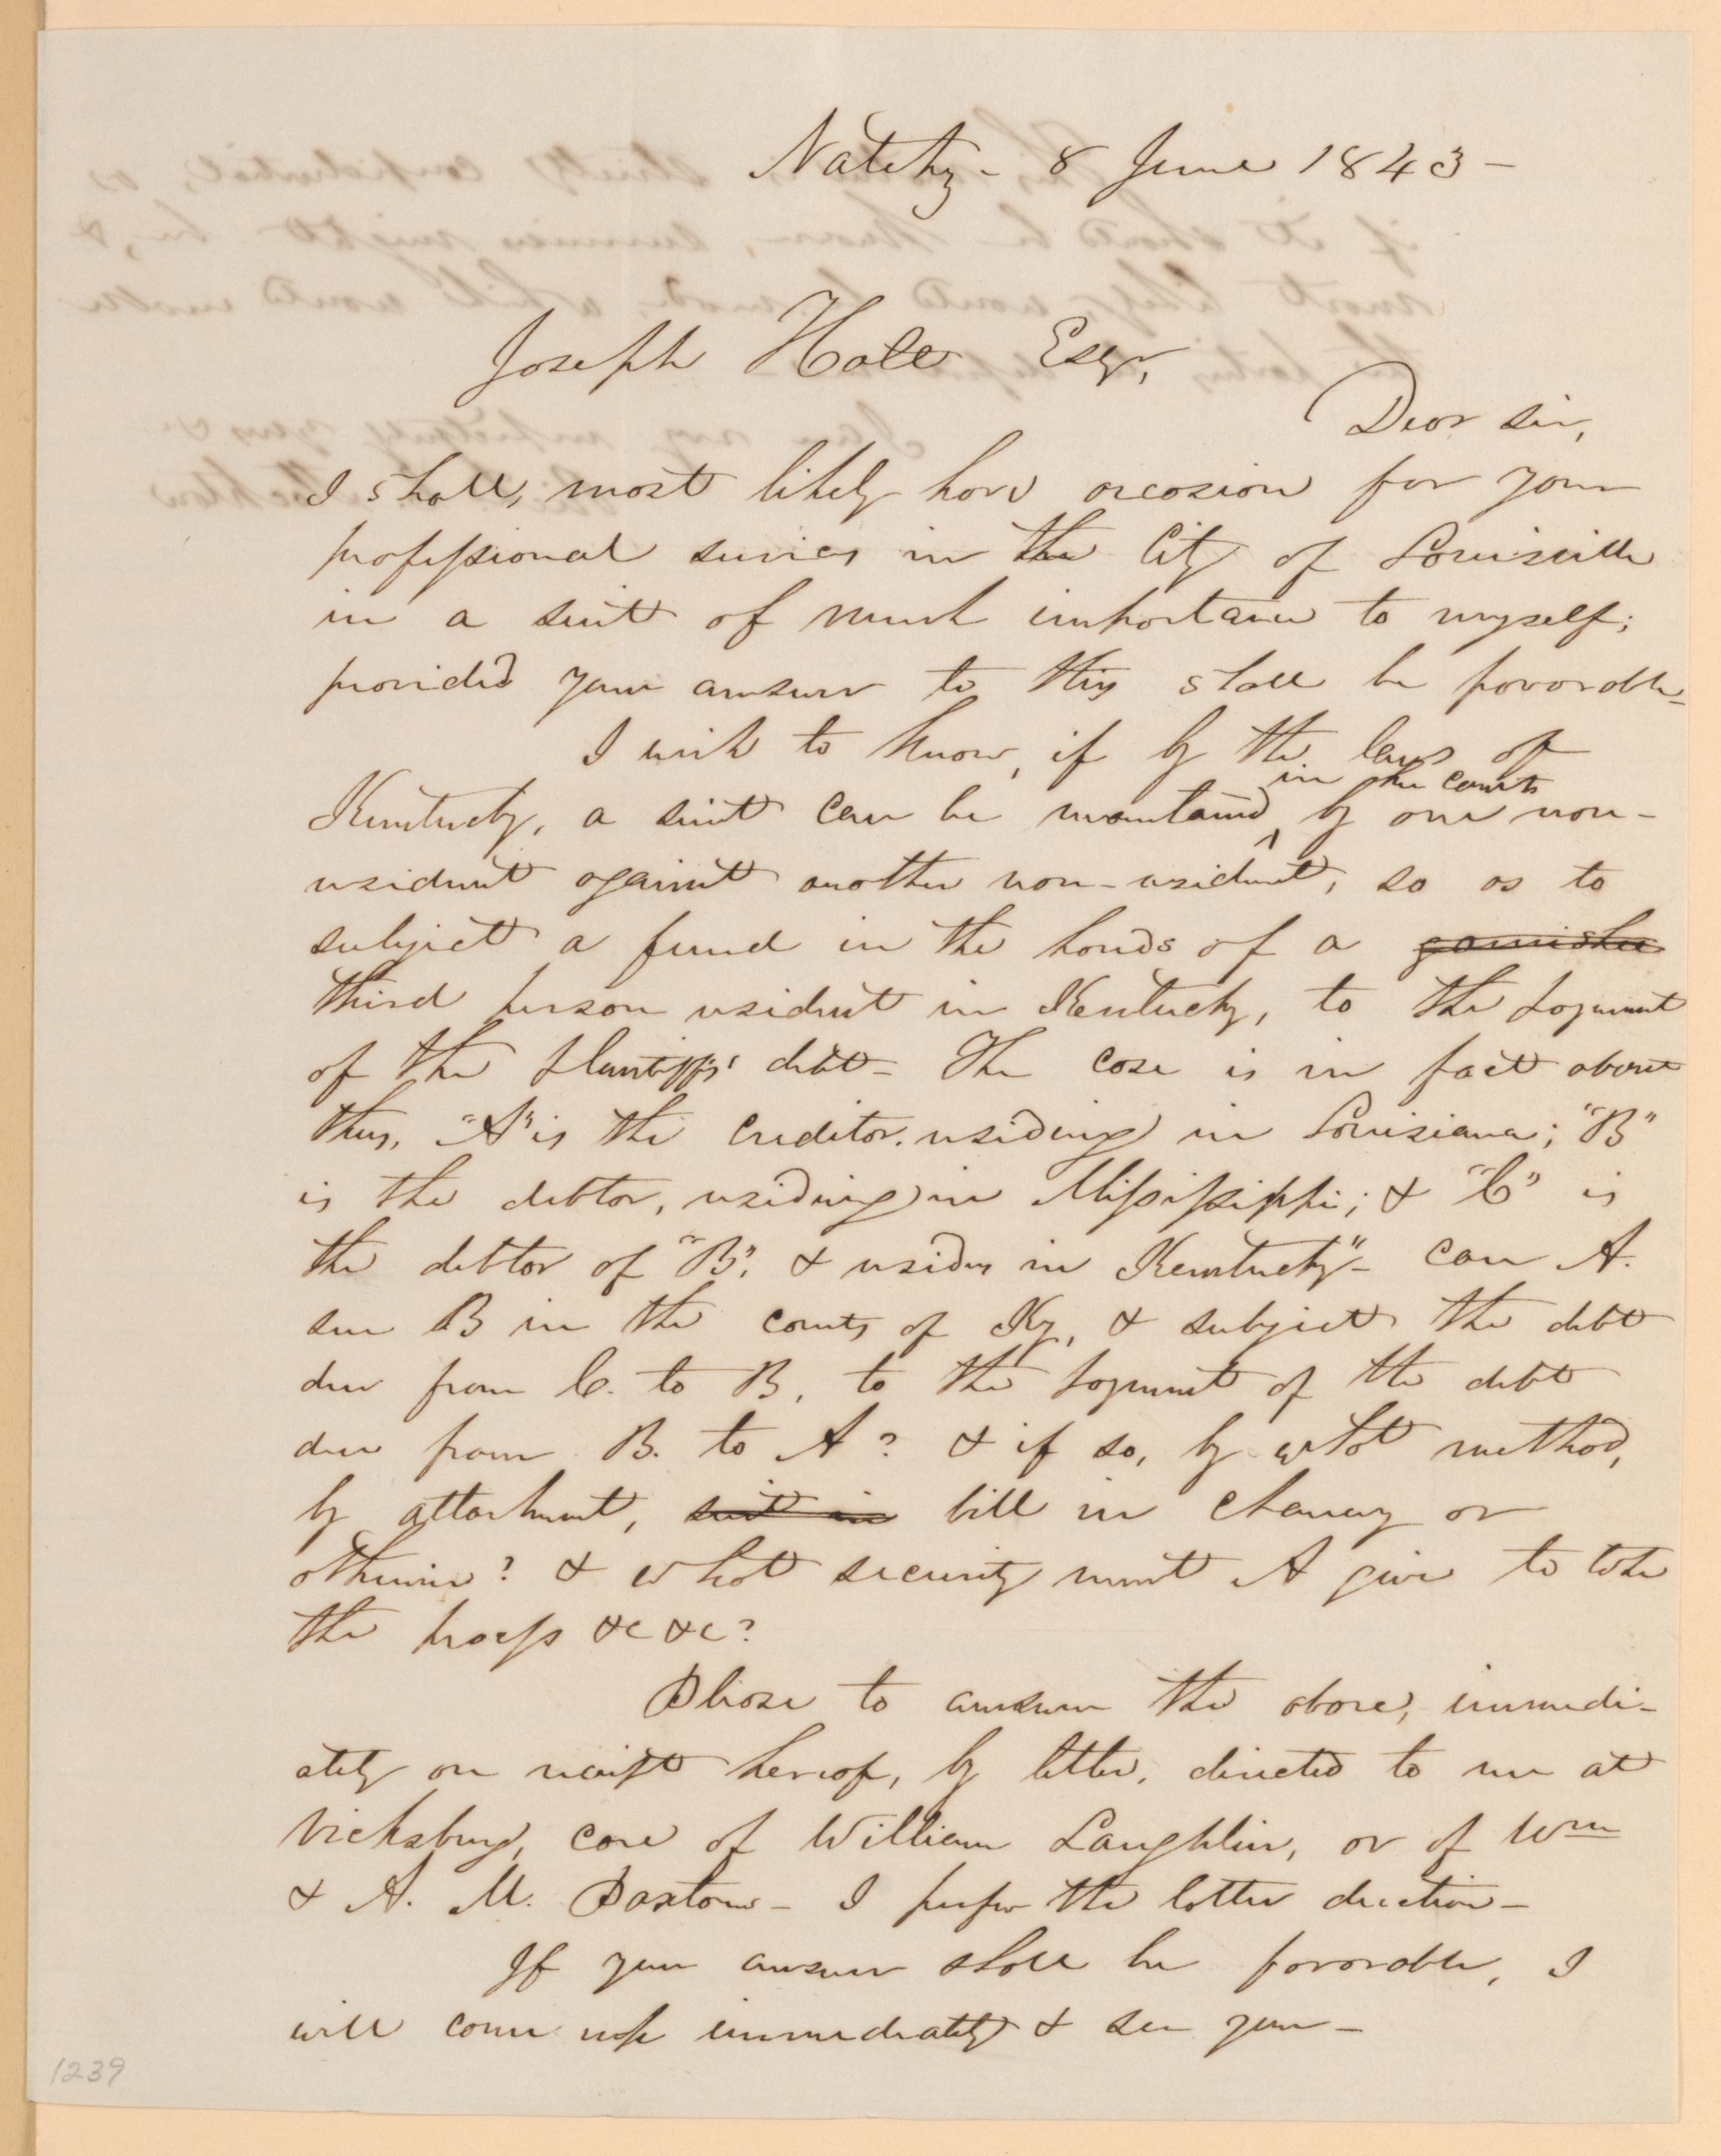 Natchz - 8 June 1843 -
Joseph Holt Esqr,
Dear sir,
I shall, most likely have occasion for your
professional services in the City of Louisville
in a suit of much importance to myself;
provided your answer to this shall be favorable -
I wish to know, if by the laws of
in the courts
Kentucky, a suit can be maintaind ^ by one non-
resident against another non-resident, so as to
subject a fund in the hands of a garnishee
third person resident in Kentucky, to the payment
of the plantiffs' debt - The case is in fact about
thus, "A" is the creditor residing in Louisiana; "B"
is the debtor, residing in Mississippi; & "C" is
the debtor of "B". & resides in Kentucky" - can A.
sue B in the courts of Ky, & subject the debt
due from C. to B, to the payment of the debt
due from B. to A? & if so, by what method,
by attachment, suit in bill in chancery or
otherwise? & what security must A give to take
the process &c &c?
Please to answer the above, immedi-
ately on receipt hereof, by letter, directed to me at
Vicksburg, care of William Laughlin, or of Wm
& A. M. Paxton - I prefer the latter direction -
If your answer shall be favorable, I
will come up immediately & see you -
1239